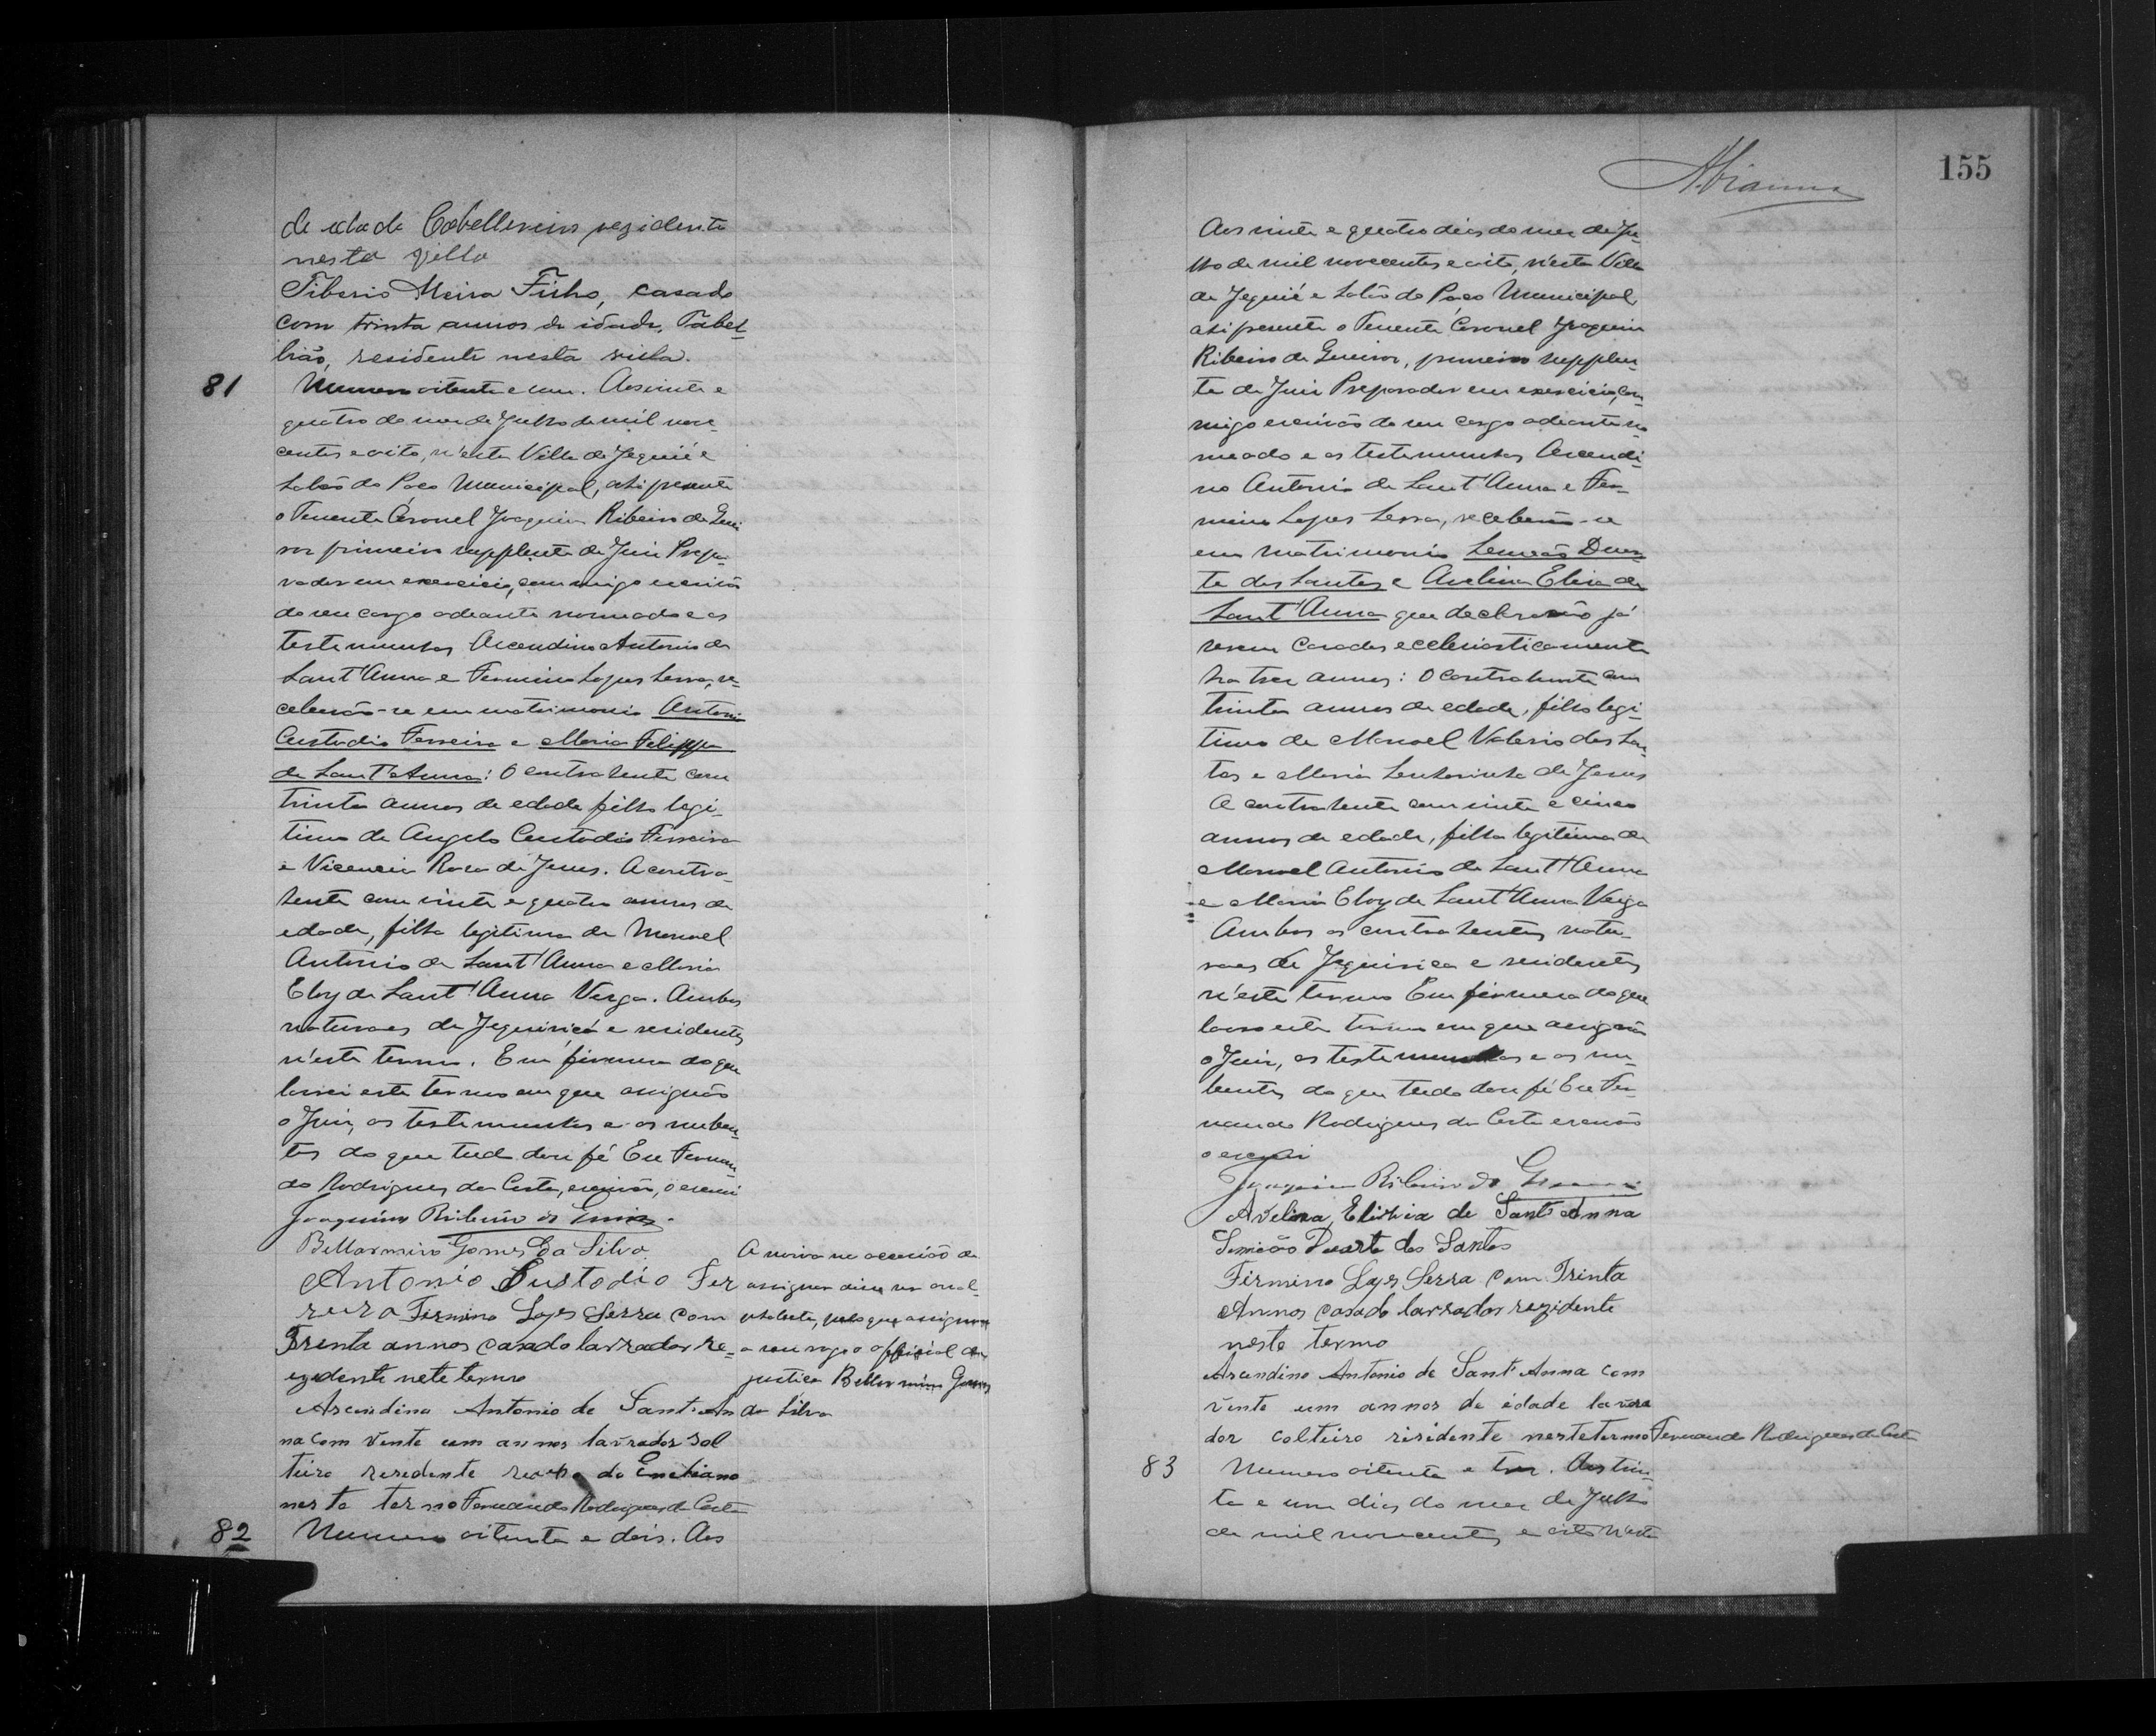 de idade Cabellereiro rezidente
nesta villa
Tiberio Meira Filho, casado
com trinta annos de idade, Tabel-
lião, residente nesta villa.
81
Numero oitenta e um. Aos vinte e
quatro do mez de Julho de mil nove-
centos e oito, n'esta Villa de Jequié e
Salão do Paço Municipal, ahi presente
o Tenente Coronel Joaquim Ribeiro de
primeiro supplente de Juiz Prepa-
rador em exercicio, commigo escrivão
do seu cargo adeante nomeado e as
testemunhas Ascendino Antonio de
Sant'Anna e Firmino Lopes Serra, re-
ceberão-se em matrimonio Antonio
Custodio Ferreira e Maria Felippa
de Sant'Anna: O contrahente com
trinta annos de edade filho legi-
timo de Angelo Custodio Ferreira
e Vicencia Roza de Jesus. A contra-
hente com vinte e quatro annos de
edade, filha legitima de Manoel
Antonio de Sant'Anna e Maria
Eloy de Sant'Anna Verga. Ambos
naturaes de Jequiriçá e residentes
n'este termo. Em firmeza do que
lavrei este termo em que assignão
o Juiz, as testemunhas e os nuben-
tes do que tudo dou fé Eu Fernan-
do Rodrigues da Costa, escrivão, o escrevi
Joaquim Ribeiro de
Bellarmino Gomes Da Silva
Antonio Custodio Fer
reira Firmino Lopes Serra com
Trenta annos casado lavrador re=
zedente nete termo
Ascendino Antonio de Sant'An
na com vente um annos lavrador sol
teiro resedente do
neste termo Fernando Rodrigues da Costa
A noiva na occasião de
assignar disse ser anal-
phabeta, pelo que assignou
a seu rogo o official de
justiça Bellarmino Gomes
da Silva
82
Numero oitenta e dois. Aos
155
Aos vinte e quatro dias do mez de Ju-
lho de mil novecentos e oito, n'esta Villa
de Jequié e Salão do Paço Municipal,
ahi presente o Tenente Coronel Joaquim
Ribeiro de, primeiro supplen-
te de Juiz Preparador em exercicio, com-
migo escrivão do seu cargo adeante no-
meado e as testemunhas Ascendi-
no Antonio de Sant'Anna e Fir-
mino Lopes Serra, receberão-se
em matrimonio Semeão Duar-
te dos Santos e Avelina Elisia de
Sant'Anna que declararão já
serem casados ecclesiasticamente
ha tres annos: O contrahente com
trinta annos de edade, filho legi-
timo de Manoel Valerio dos San-
tos e Maria Senhorinha de Jesus
A contrahente com vinte e cinco
annos de edade, filha legitima de
Manoel Antonio de Sant'Anna
e Maria Eloy de Sant'Anna Verga
Ambos os contrahentes natu-
raes de Jequiriça e residentes
n'este termo Em firmeza do que
lavro este termo em que assignão
o Juiz, as testemunhas e os nu-
bentes do que tudo dou fé Eu Fer-
nando Rodrigues da Costa escrivão
o escrevi
Joaquim Ribeiro de
Avelina Elisia de Sant'Anna
Semião Duarte dos Santos
Firmino Lopes Serra com Trinta
Annos casado lavrador rezidente
neste termo
Ascendino Antonio de Sant'Anna com
vente um annos de idade lavra
dor colteiro risidente neste termo Fernando Rodrigues da Costa
83
Numero oitenta e tres. Aos trin-
ta e um dias do mez de Julho
de mil novecentos e oito n'esta